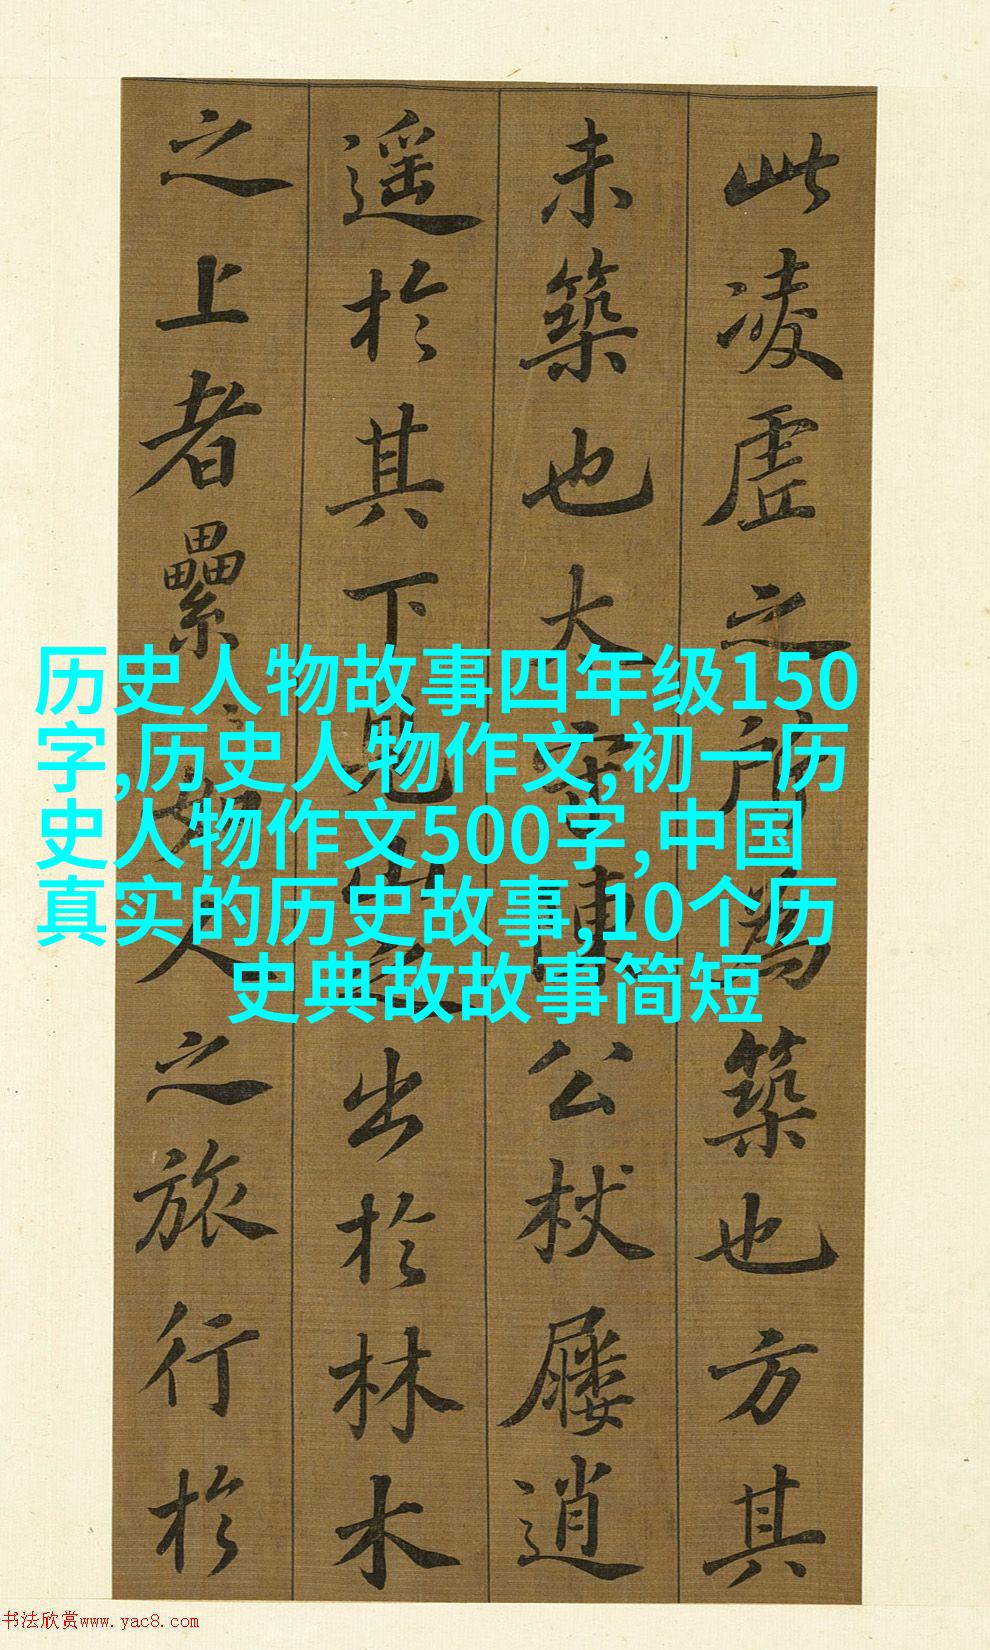 此凌虚之所为築也方其
未築也太守陳公杖屨逍
遥於其下見山之出於林木
之上者纍纍如人之旅行於
历史人物故事四年级150
字,历史人物作文,初一历
史人物作文500字,中国
真实的历史故事,10个历
史典故故事简短
书法欣赏www.yac8.com